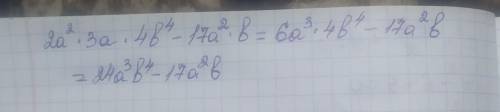 2a²·3a·4b⁴-17a²·b=6a³·4b⁴-17a²b
=24a³b⁴-17a²b